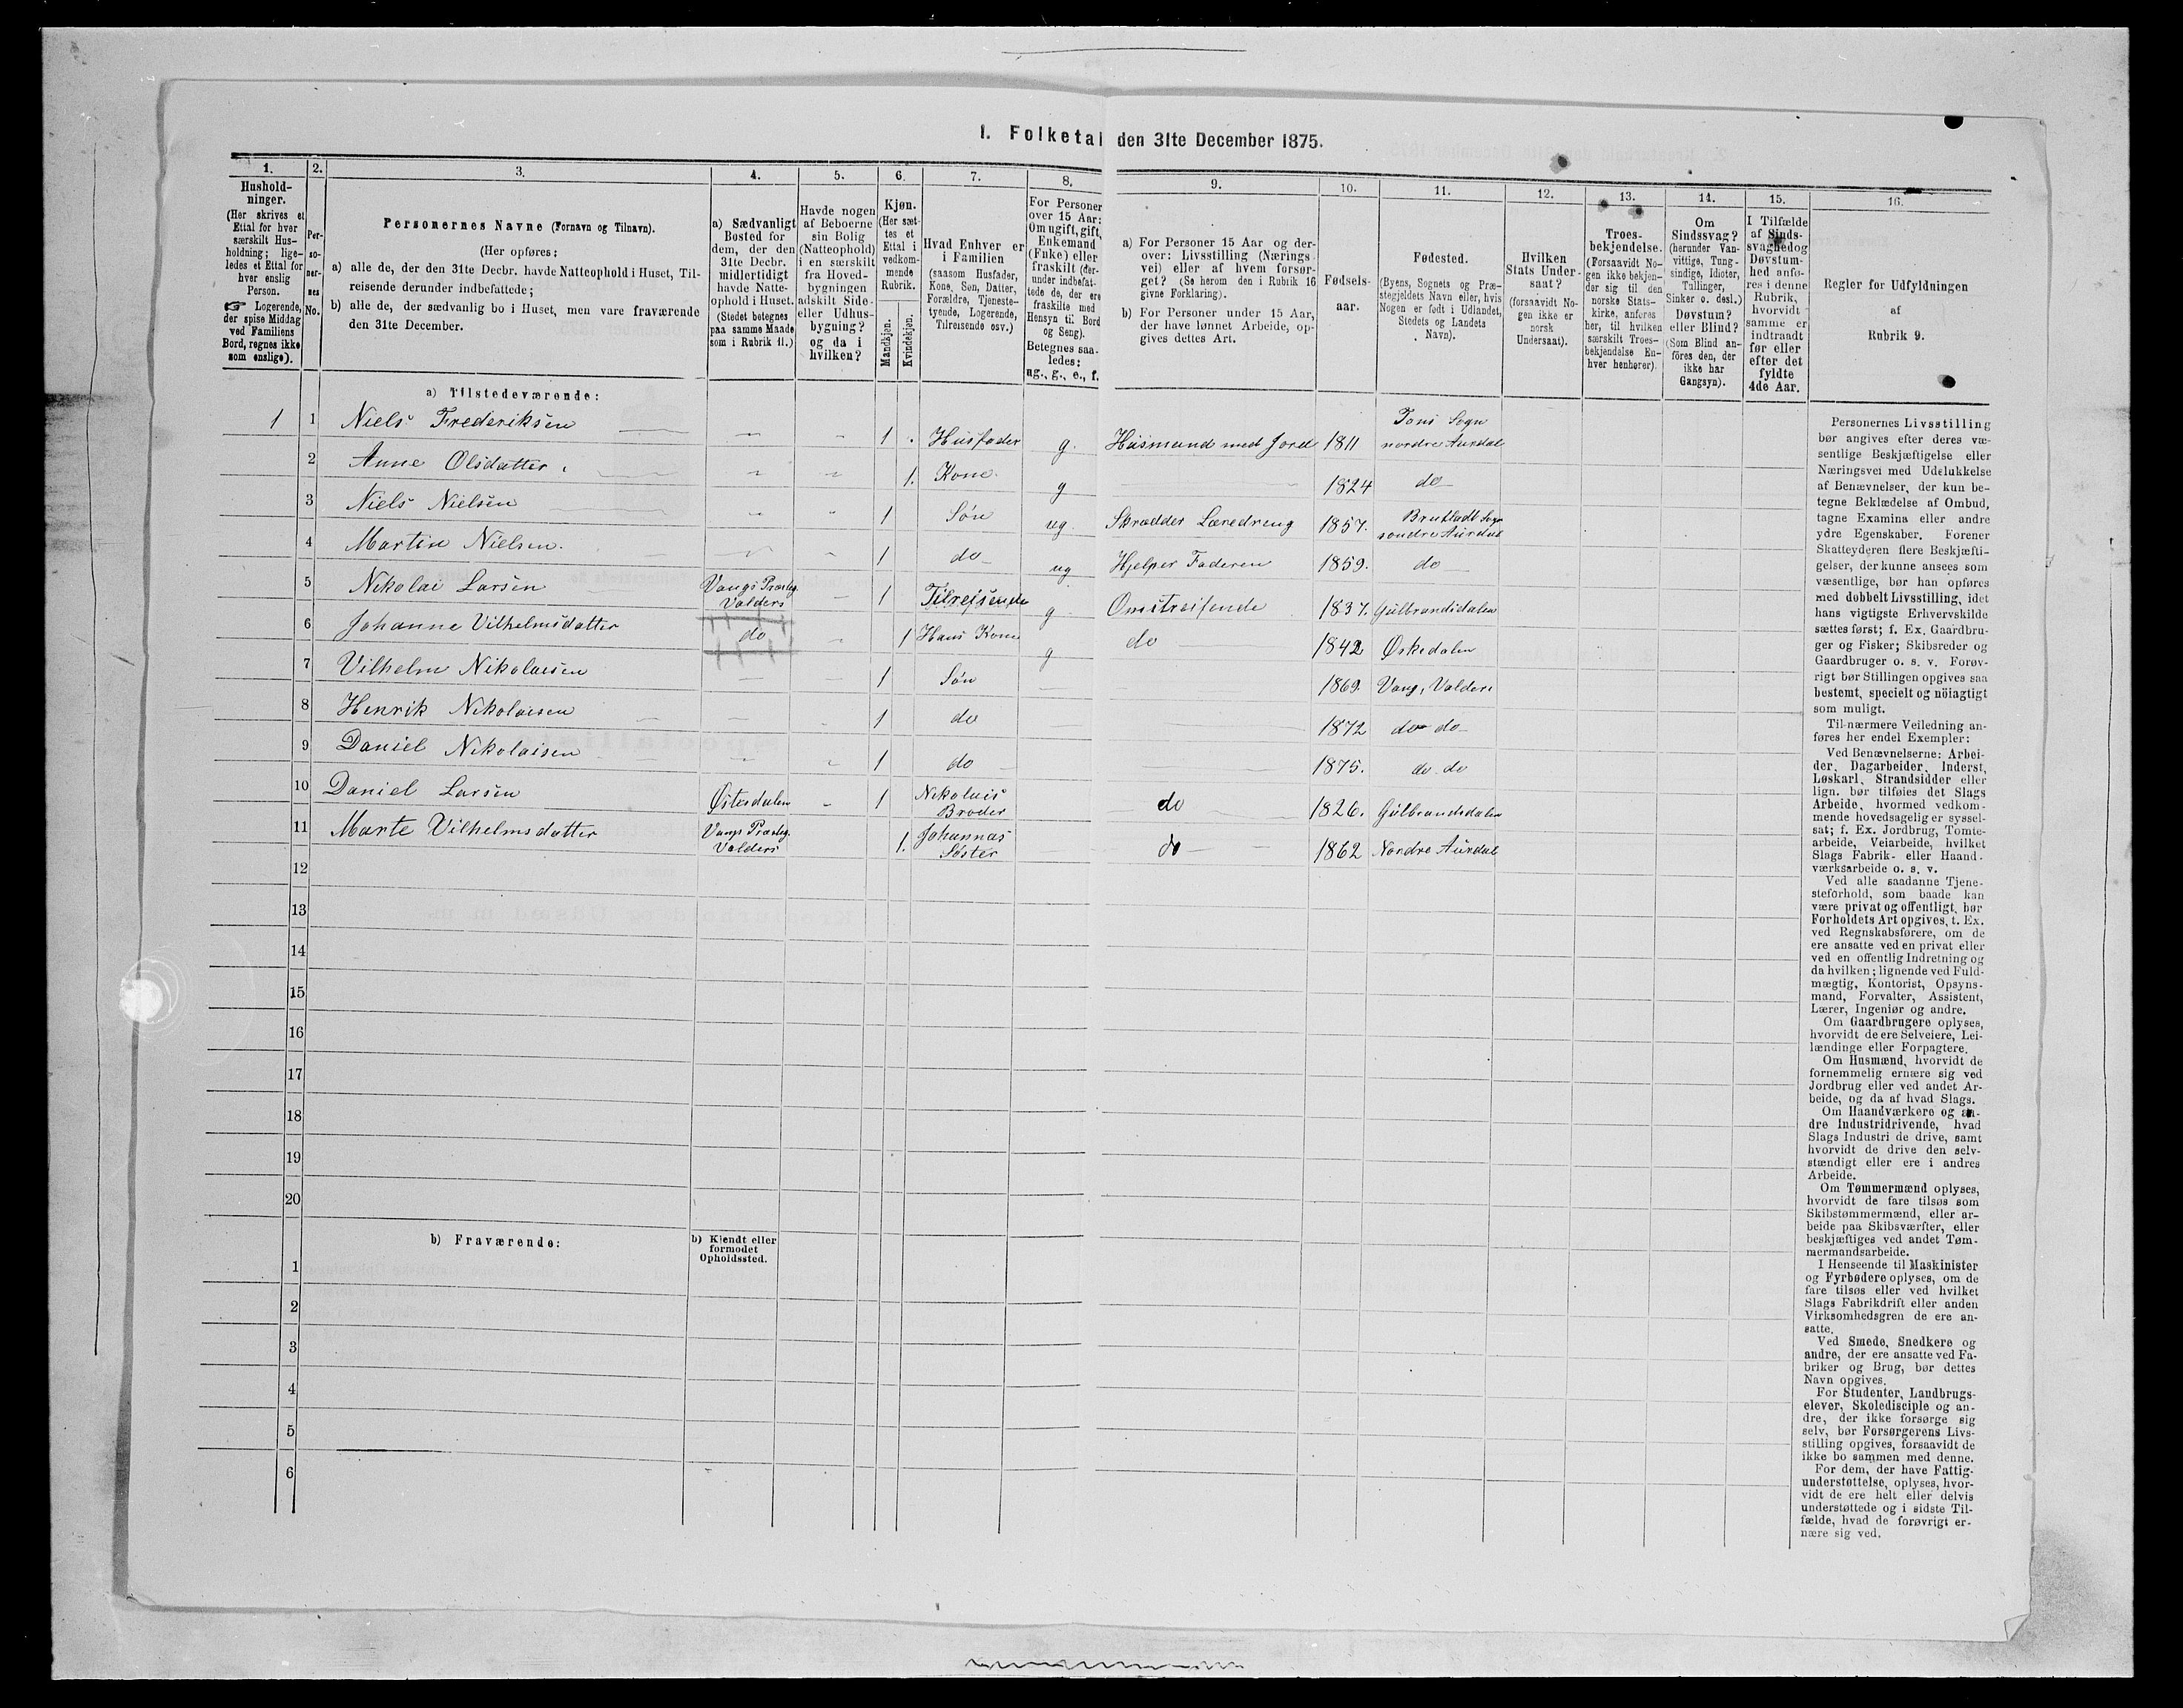 1. Folketal den 31te December 1875.
1.
Hushold-
ninger.
(Her skrives et
Ettal for hver
særskilt Hus-
holdning; lige-
ledes et Ettal for
hver enslig
Person.
☞ Logerende,
der spise Middag
ved Familiens
Bord, regnes ikke
som enslige).
2.
Per-
so-
ner-
nes
No.
3.
Personernes Navne (Fornavn og Tilnavn).
(Her opføres:
a) alle de, der den 31te Decbr. havde Natteophold i Huset, Til-
reisende derunder indbefattede;
b) alle de, der sædvanlig bo i Huset, men vare fraværende
den 31te December.
4.
a) Sædvanligt
Bosted for
dem, der den
31te Decbr.
midlertidigt
havde Natte-
ophold i Huset.
(Stedet betegnes
paa samme Maade
som i Rubrik 11.)
5.
Havde nogen
af Beboerne
sin Bolig
(Natteophold)
i en særskilt
fra Hoved-
bygningen
adskilt Side-
eller Udhus-
bygning?
og da i
hvilken?
6.
Kjøn.
(Her sæt-
tes et
Ettal i
vedkom-
mende
Rubrik.
Mandkjøn.
Kvindekjøn.
7.
Hvad Enhver er
i Familien
(saasom Husfader,
Kone, Søn, Datter,
Forældre, Tjeneste-
tyende, Logerende,
Tilreisende osv.)
8.
For Personer
over 15 Aar:
Om ugift, gift,
Enkemand
(Enke) eller
fraskilt (der-
under indbefat-
tede de, der ere
fraskilte med
Hensyn til Bord
og Seng).
Betegnes saa-
ledes:
ug., g., e., f.
9.
a) For Personer 15 Aar og der-
over: Livsstilling (Nærings-
vei) eller af hvem forsør-
get? (Se herom den i Rubrik 16
givne Forklaring).
b) For Personer under 15 Aar,
der have lønnet Arbeide, op-
gives dettes Art.
10.
Fødsels-
aar.
11.
Fødested.
(Byens, Sognets og Præ-
stegjeldets Navn eller, hvis
Nogen er født i Udlandet,
Stedets og Landets
Navn).
12.
Hvilken
Stats Under-
saat?
(forsaavidt No-
gen ikke er
norsk
Undersaat).
13.
Troes-
bekjendelse.
(Forsaavidt No-
gen ikke bekjen-
der sig til den
norske Stats-
kirke, anføres
her, til hvilken
særskilt Troes-
bekjendelse En-
hver henhører).
14.
Om
Sindssvag?
(herunder Van-
vittige, Tung-
sindige, Idioter,
Tullinger,
Sinker o. desl.)
Døvstum?
eller Blind?
(Som Blind an-
føres den, der
ikke har
Gangsyn).
15.
I Tilfælde
af Sinds-
svaghed og
Døvstum-
hed anfø-
res i denne
Rubrik,
hvorvidt
samme er
indtraadt
før eller
efter det
fyldte
4de Aar.
16.
Regler for Udfyldningen
af
Rubrik 9.
a) Tilstedeværende:
1 1 Niels Frederiksen 1 Husfader g. Husmand med Jord 1811 Sogn nordre Aurdal
2 Anne Olsdatter 1. Kone g 1824 do
3 Niels Nielsen 1 Søn ug. Skrædder Læredreng 1857. søndre Aurdal
4 Martin Nielsen. 1 do ug Hjelper Faderen 1859. do
5 Nikolai Larsen Vangs Præstg. Valders 1 Tilreisende g Omstreifende 1837. Gulbrandsdalen
6 Johanne Vilhelmsdatter do 1 Hans Kone g do 1842
7 Vilhelm Nikolaisen 1 Søn 1869. Vang, Valders
8 Henrik Nikolaisen 1 do 1872 do do
9 Daniel Nikolaisen 1 do 1875. do do
10 Daniel Larsen Østerdalen 1 Nikolais Broder do 1826. Gulbrandsdalen
11 Marte Vilhelmsdatter Vangs Præstg. Valders 1. Johannas Søster do 1862 Nordre Aurdal
12
13
14
15
16
17
18
19
20
b) Fraværende:
b) Kjendt eller
formodet
Opholdssted.
1
2
3
4
5
6
Personernes Livsstilling
bør angives efter deres væ-
sentlige Beskjæftigelse eller
Næringsvei med Udelukkelse
af Benævnelser, der kun be-
tegne Beklædelse af Ombud,
tagne Examina eller andre
ydre Egenskaber. Forener
Skatteyderen flere Beskjæfti-
gelser, der kunne ansees som
væsentlige, bør han opføres
med dobbelt Livsstilling, idet
hans vigtigste Erhvervskilde
sættes først; f. Ex. Gaardbru-
ger og Fisker; Skibsreder og
Gaardbruger o. s. v. Forøv-
rigt bør Stillingen opgives saa
bestemt, specielt og nöiagtigt
som muligt.
Til nærmere Veiledning an-
føres her endel Exempler:
Ved Benævnelserne: Arbei-
der, Dagarbeider, Inderst,
Løskarl, Strandsidder eller
lign. bør tilføies det Slags
Arbeide, hvormed vedkom-
mende hovedsagelig er syssel-
sat; f. Ex. Jordbrug, Tomte-
arbeide, Veiarbeide, hvilket
Slags Fabrik- eller Haand-
værksarbeide o. s. v.
Ved alle saadanne Tjene-
steforhold, som baade kan
være privat og offentligt, bør
Forholdets Art opgives, t. Ex.
ved Regnskabsførere, om de
ere ansatte ved en privat eller
ved en offentlig Indretning og
da hvilken; lignende ved Fuld-
mægtig, Kontorist, Opsyns-
mand, Forvalter, Assistent,
Lærer, Ingeniør og andre.
Om Gaardbrugere oplyses,
hvorvidt de ere Selveiere, Lei-
lændinge eller Forpagtere.
Om Husmænd, hvorvidt de
fornemmelig ernære sig ved
Jordbrug eller ved andet Ar-
beide, og da af hvad Slags.
Om Haandværkere og an-
dre Industridrivende, hvad
Slags Industri de drive, samt
hvorvidt de drive den selv-
stændigt eller ere i andres
Arbeide.
Om Tømmermænd oplyses,
hvorvidt de fare tilsøs som
Skibstømmermænd, eller ar-
beide paa Skibsværfter, eller
beskjæftiges ved andet Tøm-
mermandsarbeide.
I Henseende til Maskinister
og Fyrbødere oplyses, om de
fare tilsøs eller ved hvilket
Slags Fabrikdrift eller anden
Virksomhedsgren de ere an-
satte.
Ved Smede, Snedkere og
andre, der ere ansatte ved Fa-
briker og Brug, bør dettes
Navn opgives.
For Studenter, Landbrugs-
elever, Skoledisciple og an-
dre, der ikke forsørge sig
selv, bør Forsørgerens Livs-
stilling opgives, forsaavidt de
ikke bo sammen med denne.
For dem, der have Fattig-
understøttelse, oplyses, hvor-
vidt de ere helt eller delvis
understøttede og i sidste Til-
fælde, hvad de forøvrigt er-
nære sig ved.